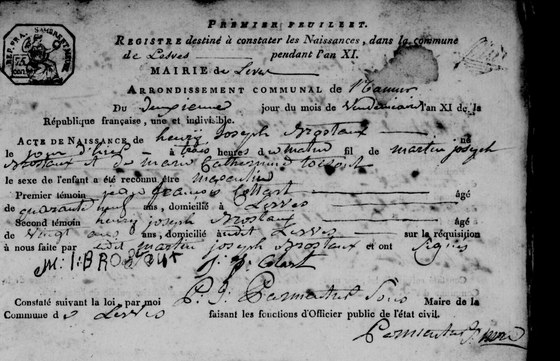 REP. FRA. SAMBRE ET MEUSE
PREMIER FEUILLET.
REGISTRE destiné à constater les Naissances, dans la commune
de Lesves pendant l'an XI.
MAIRIE de Lesves
ARRONDISSEMENT COMMUNAL de Namur
Du deuxieme jour du mois de Vendemiaire l'an XI de la
République française, une et indivisible.
ACTE DE NAISSANCE de henry Joseph Brosteaux né
le jour d'hier à trois heures du matin fil de martin joseph
Brostaux et de marie Catherinne
le sexe de l'enfant a été reconnu être masculin
Premier témoin jean francois Collart âgé
de quarante neuf ans, domicilié à Lesves
Second témoin henry joseph Brostaux âgé
de Vingt ans, domicilié audit Lesves sur la réquisition
à nous faite par ledit martin joseph Brostaux et ont Signés
M: I: BROSTAUX J. f. Collart
Constaté suivant la loi, par moi P. J. Parmentier Maire de la
Commune de Lesves faisant les fonctions d'Officier public de l'état civil.
Parmentier